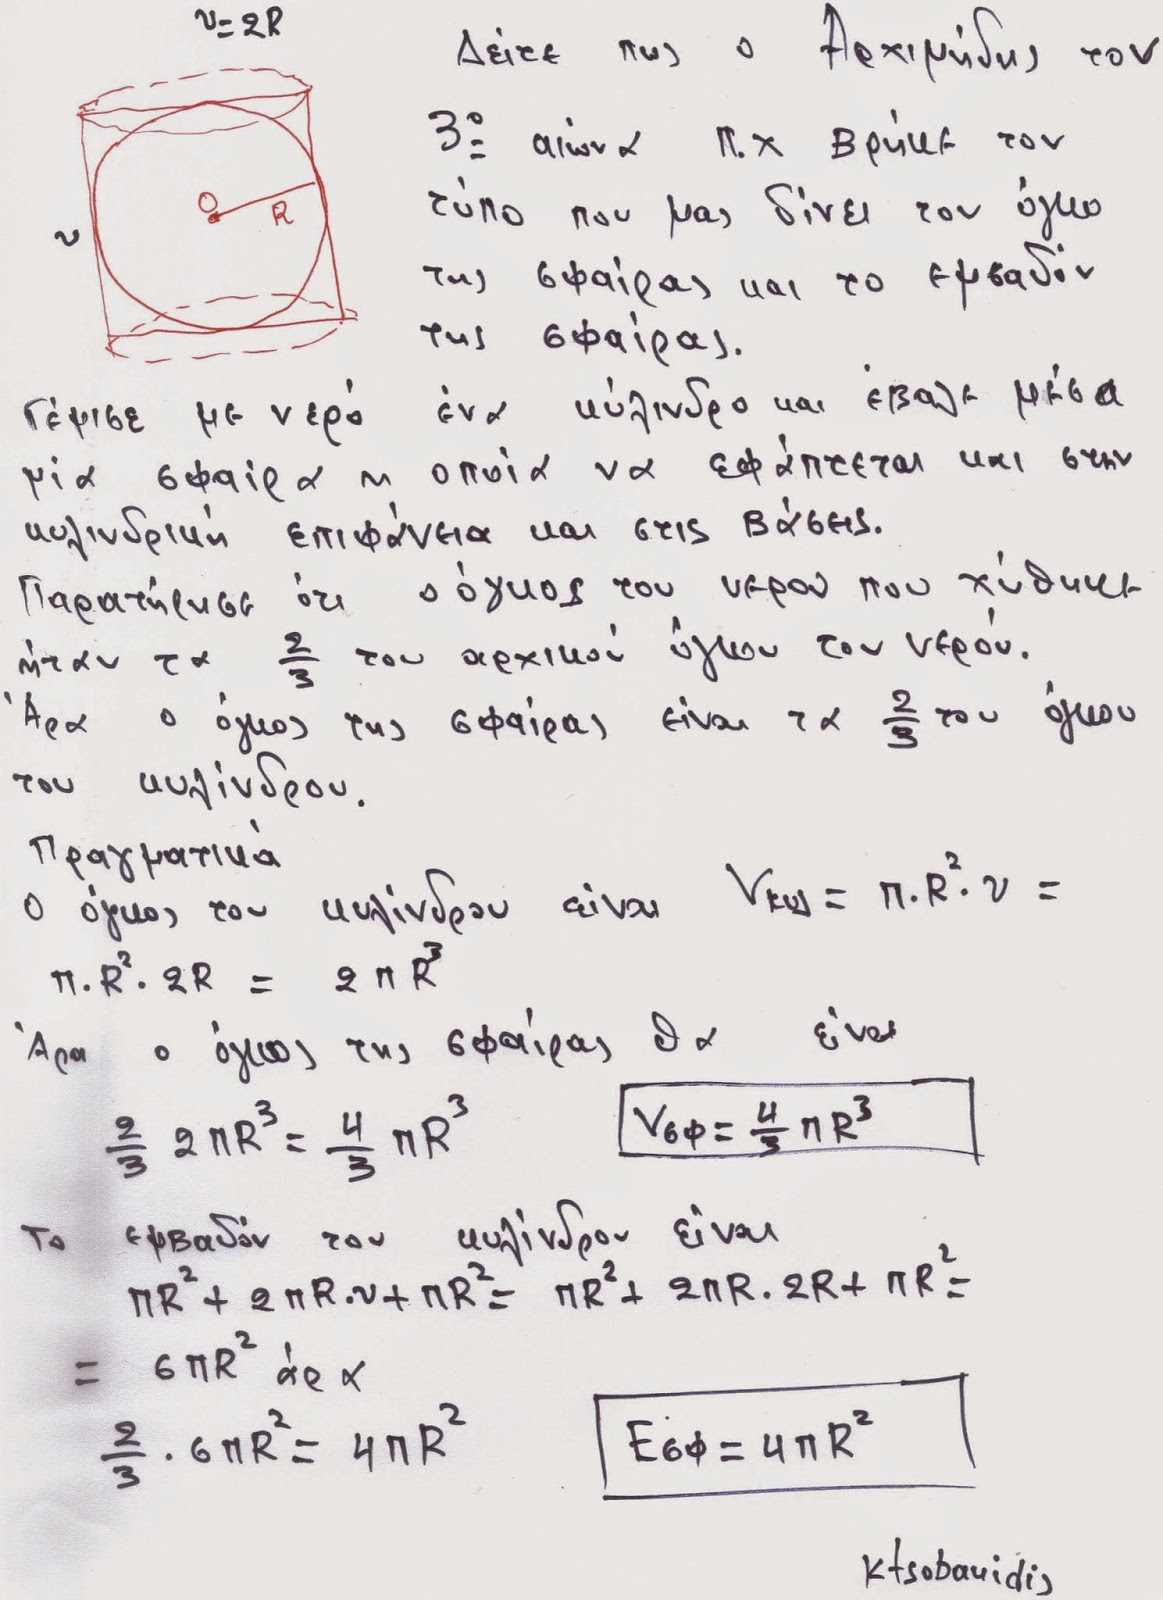 υ=2R
Δείτε πως ο Αρχιμήδης τον
3º αιώνα π.χ βρήκε τον
τύπο που μας δίνει τον όγκο
της σφαίρας και το εμβαδόν
της σφαίρας.
O
R
υ
Γέμισε με νερό ένα κύλινδρο και έβαλε μέσα
μία σφαίρα η οποία να εφάπτεται και στην
κυλινδρική επιφάνεια και στις βάσεις.
Παρατήρησε ότι ο όγκος του νερού που χύθηκε
ήταν τα 2/3 του αρχικού όγκου του νερού.
Άρα ο όγκος της σφαίρας είναι τα 2/3 του όγκου
του κυλίνδρου.
Πραγματικά
Ο όγκος του κυλίνδρου είναι Vκυλ = π.R²·υ =
π.R²·2R = 2πR³
Άρα ο όγκος της σφαίρας θα είναι
2/3 2πR³ = 4/3 πR³
Vσφ = 4/3 πR³
Το εμβαδόν του κυλίνδρου είναι
πR² + 2πR·υ + πR² = πR² + 2πR.2R + πR² =
= 6πR² άρα
2/3 · 6πR² = 4πR²
Εσφ = 4πR²
ktsobanidis